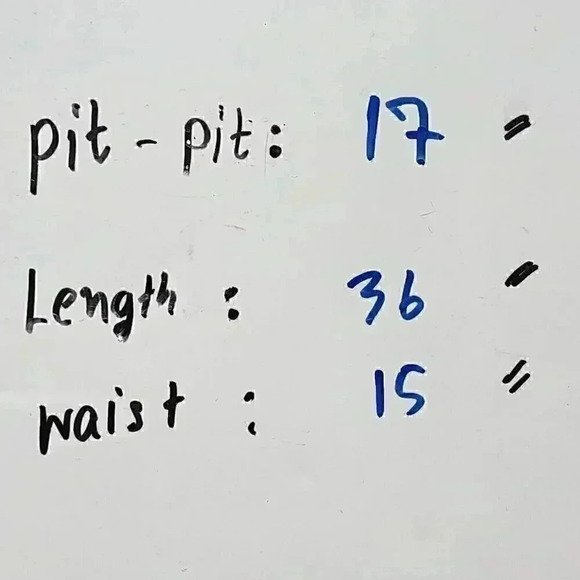 pit - pit: 17 "
Length : 36 "
waist : 15 "